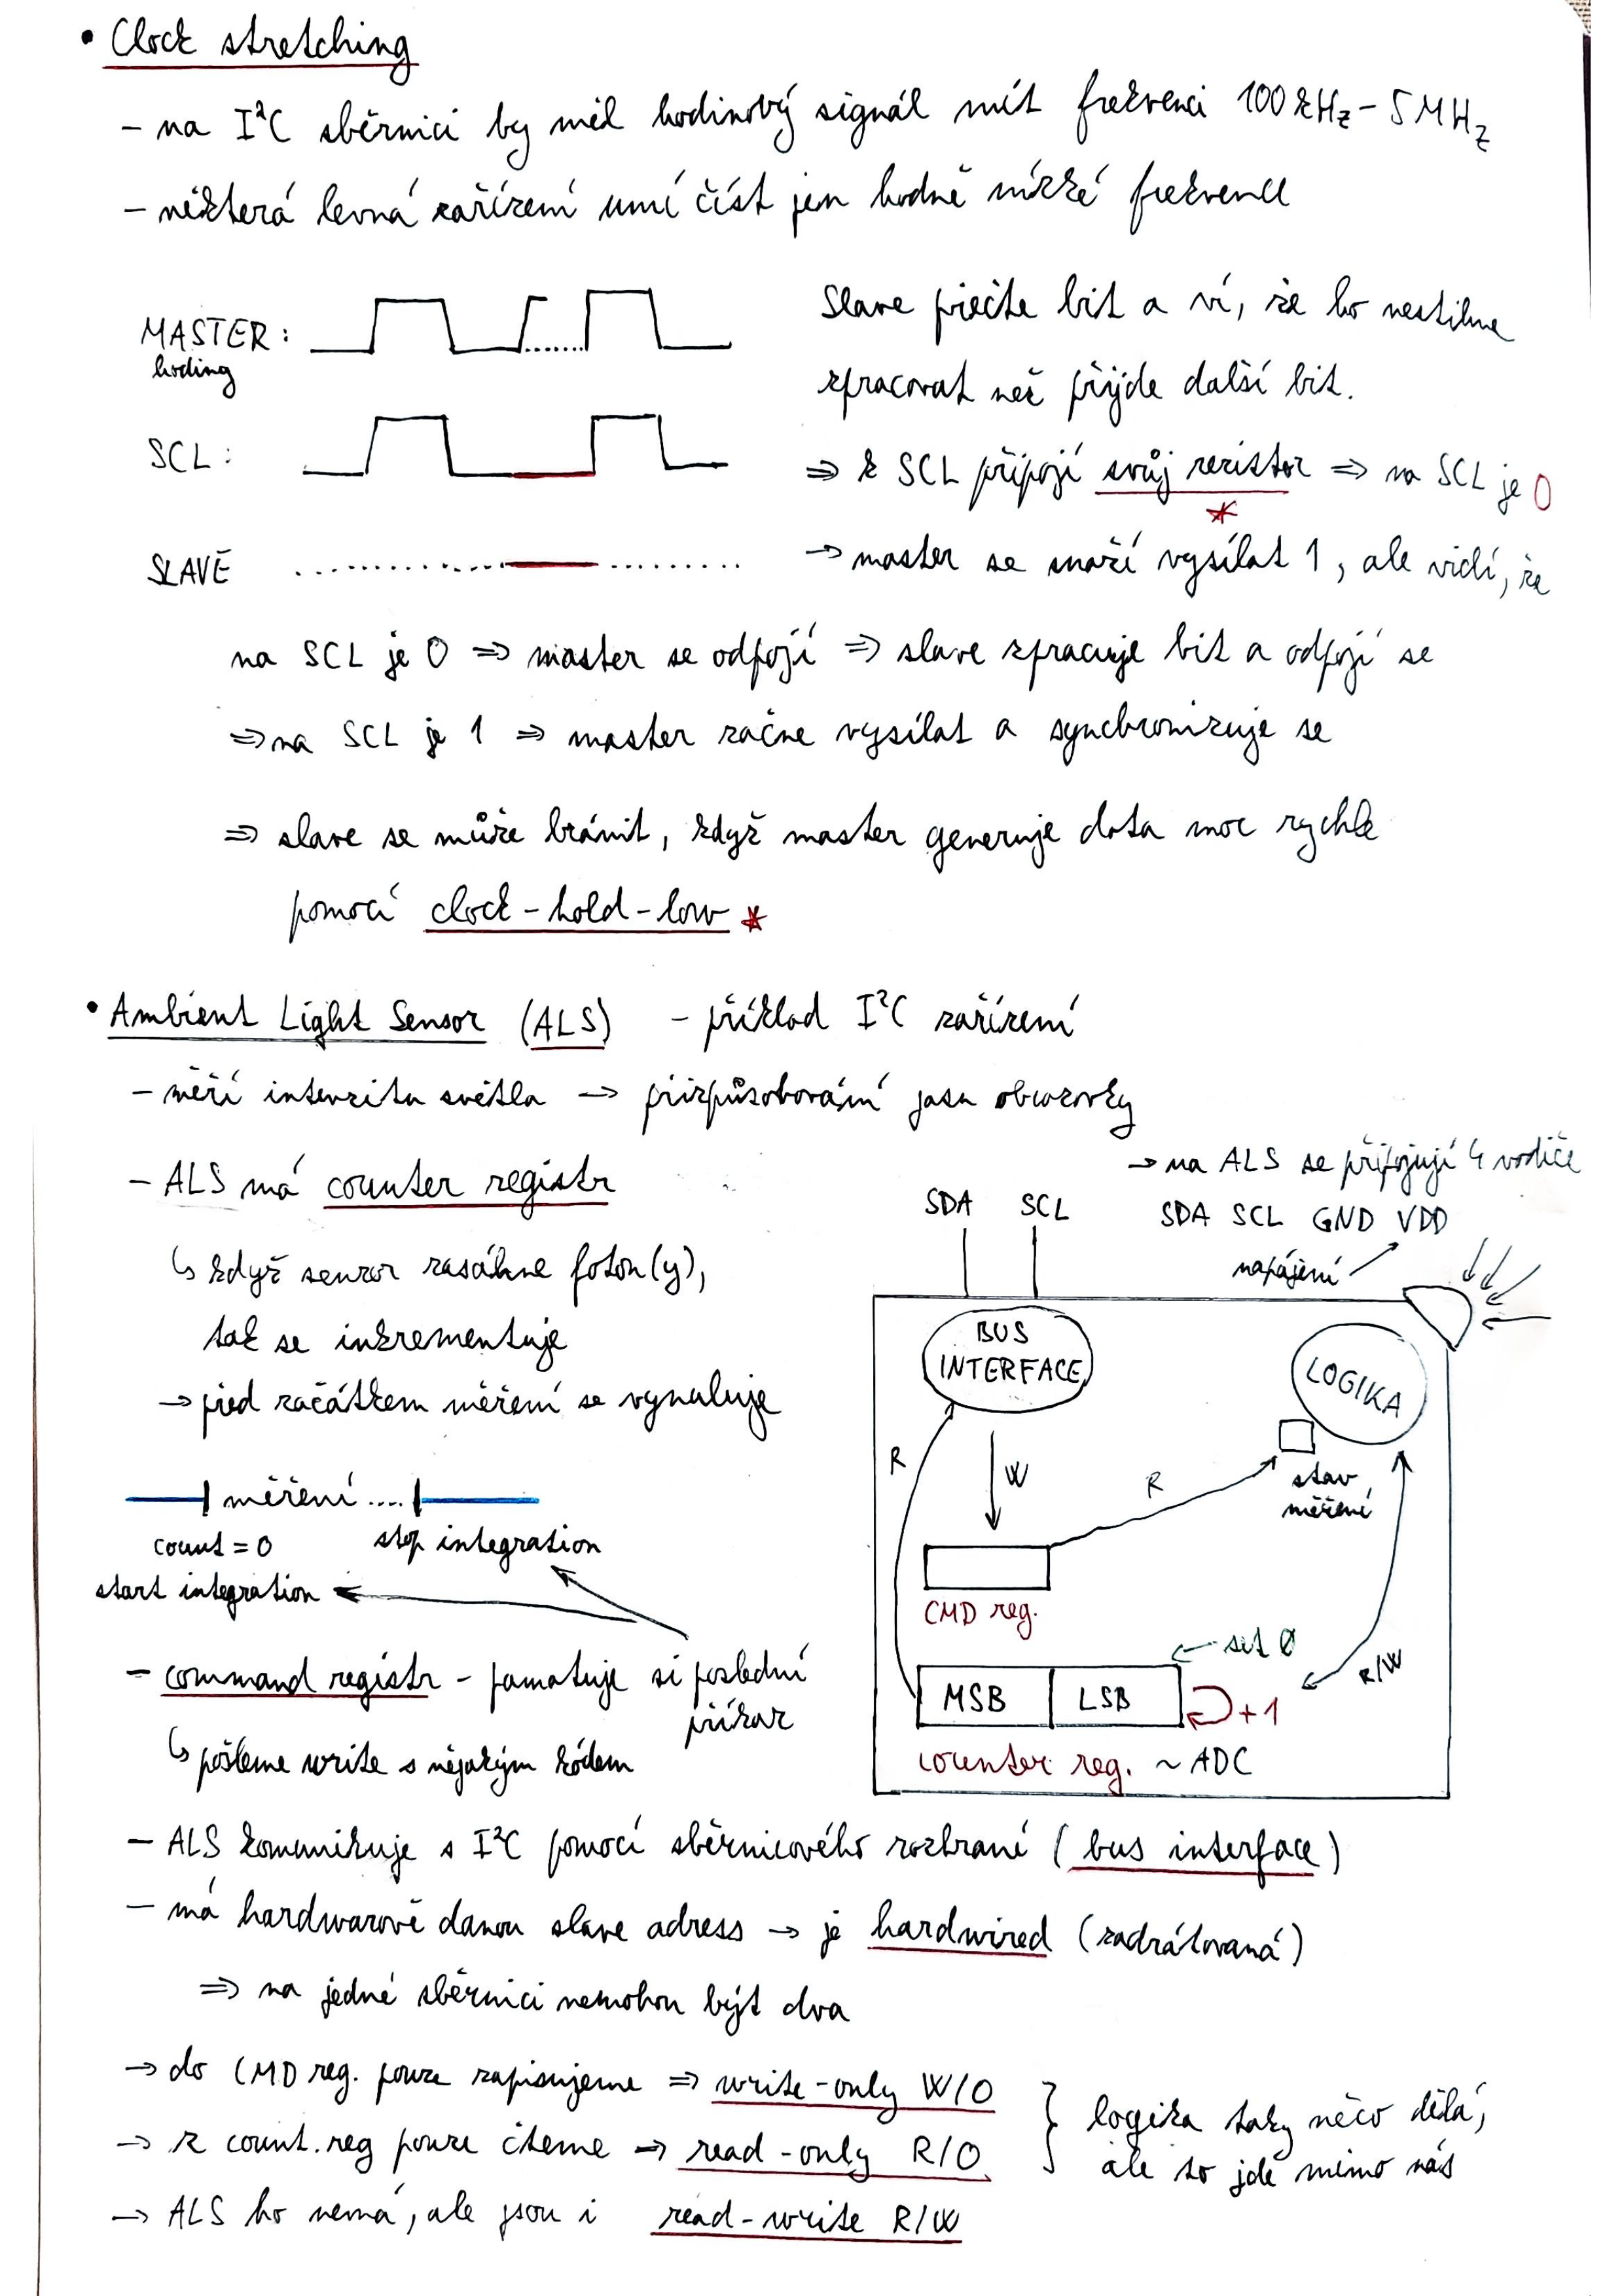 • Clock stretching
- na I²C sběrnici by měl hodinový signál mít frekvenci 100 kHz - 5 MHz
- některá levná zařízení umí číst jen hodně nízké frekvence
MASTER:
hodiny
SCL:
SLAVE
Slave přečte bit a ví, že ho nestihne
zpracovat než přijde další bit.
⇒ k SCL připojí svůj rezistor ⇒ na SCL je 0
*
→ master se snaží vysílat 1, ale vidí, že
na SCL je 0 ⇒ master se odpojí ⇒ slave zpracuje bit a odpojí se
⇒ na SCL je 1 ⇒ master začne vysílat a synchronizuje se
⇒ slave se může bránit, když master generuje data moc rychle
pomocí clock-hold-low *
• Ambient Light Sensor (ALS) - příklad I²C zařízení
- měří intenzitu světla → přizpůsobování jasu obrazovky
- ALS má counter registr
↳ když senzor zasáhne foton(y),
tak se inkrementuje
→ před začátkem měření se vynuluje
měření ....
count = 0 stop integration
start integration
- command registr - pamatuje si poslední
příkaz
↳ pošleme write s nějakým kódem
→ na ALS se připojují 4 vodiče
SDA SCL GND VDD
napájení
SDA SCL
BUS
INTERFACE
LOGIKA
R
W
R
stav
měření
CMD reg.
← set 0
R/W
MSB LSB
+1
counter reg. ~ ADC
- ALS komunikuje s I²C pomocí sběrnicového rozhraní (bus interface)
- má hardwarově danou slave adress → je hardwired (zadrátovaná)
⇒ na jedné sběrnici nemohou být dva
→ do CMD reg. pouze zapisujeme ⇒ write-only W/O
→ z count. reg pouze čteme → read-only R/O
→ ALS ho nemá, ale jsou i read-write R/W
} logika taky něco dělá,
ale to jde mimo nás